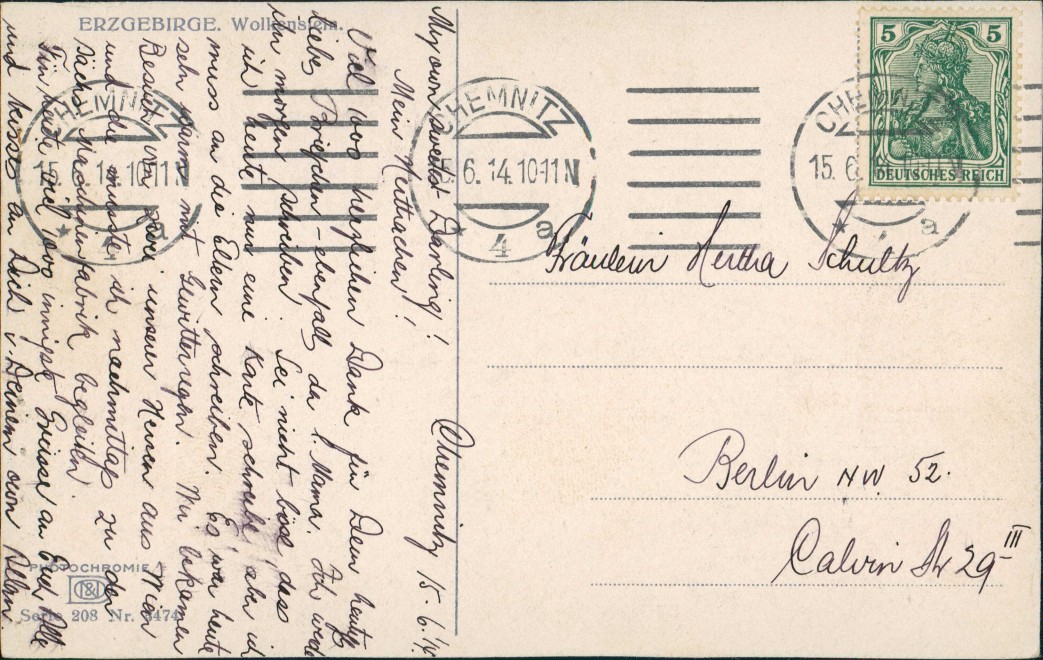 ERZGEBIRGE. Wolkenstein.
Chemnitz 15.6.14.
My own sweetest Darling!
Mein Herthachen!
Viel 1000 herzlichen Dank für Dein heutig
liebes Briefchen - ebenfalls da l. Mama. Ich werde
ihr morgen schreiben. Sei nicht böse, dass
ich heute nur eine Karte schreibe, aber ich
muss an die Eltern schreiben. Es war heute
sehr warm mit Gewitterregen. Wir bekamen
Besuch von zwei unserer Herren aus Wien
und die musste ich nachmittags zu der
Sächs. fabrik begleiten.
Für heute viel 1000 innigste Grüsse an Euch Alle
und Küsse an Dich v. Deinem own
PHOTOCHROMIE
Serie 208 Nr. 3474
CHEMNITZ
15.6.14.10-11N
* 4 a
CHEMNITZ
15.6.14.10-11N
* 4 a
CHEMNITZ
15.6.14.10-11N
* 4 a
5 5
DEUTSCHES REICH
Fräulein Hertha Schultz
Berlin NW 52.
Calvin Str 29 III